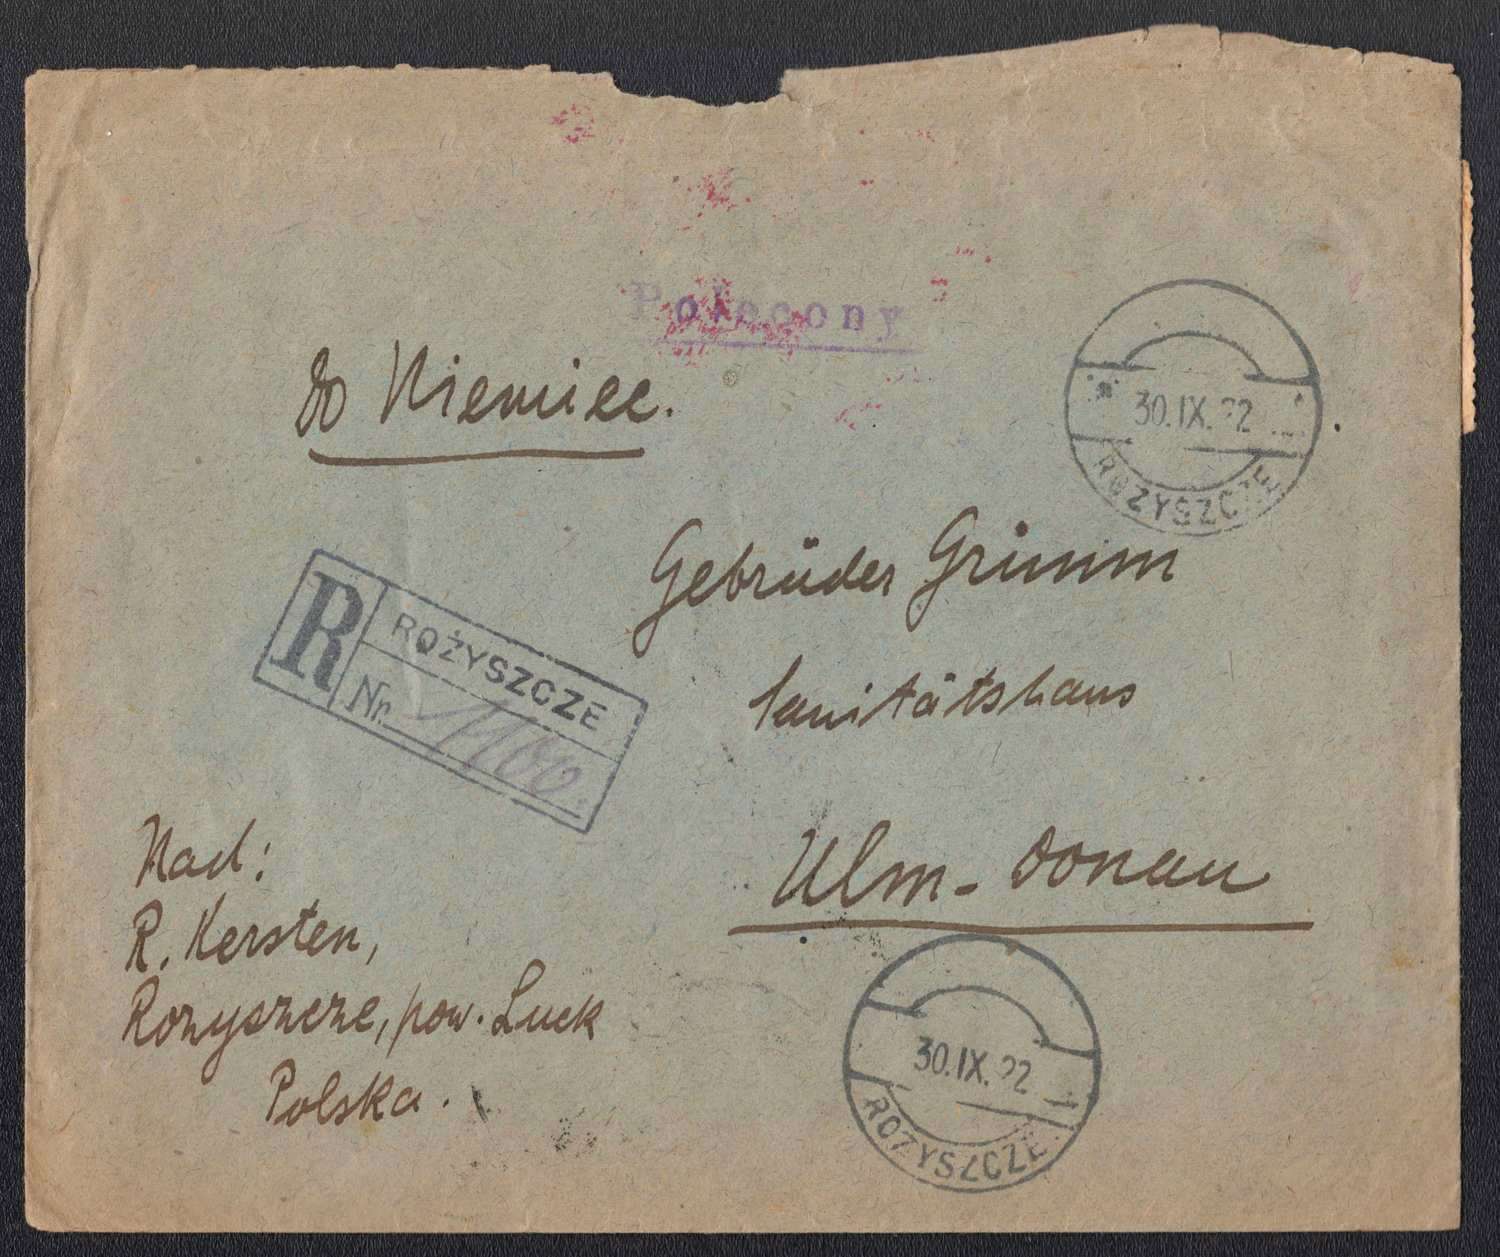 Polecony
do Niemiec.
30.IX.22
ROŻYSZCZE
Gebrüder Grimm
R ROŻYSZCZE
Nr. 1100
Sanitätshaus
Ulm-Donau
Nad:
R. Kersten,
Rozyszcze, pow. Luck
Polska.
30.IX.22
ROŻYSZCZE